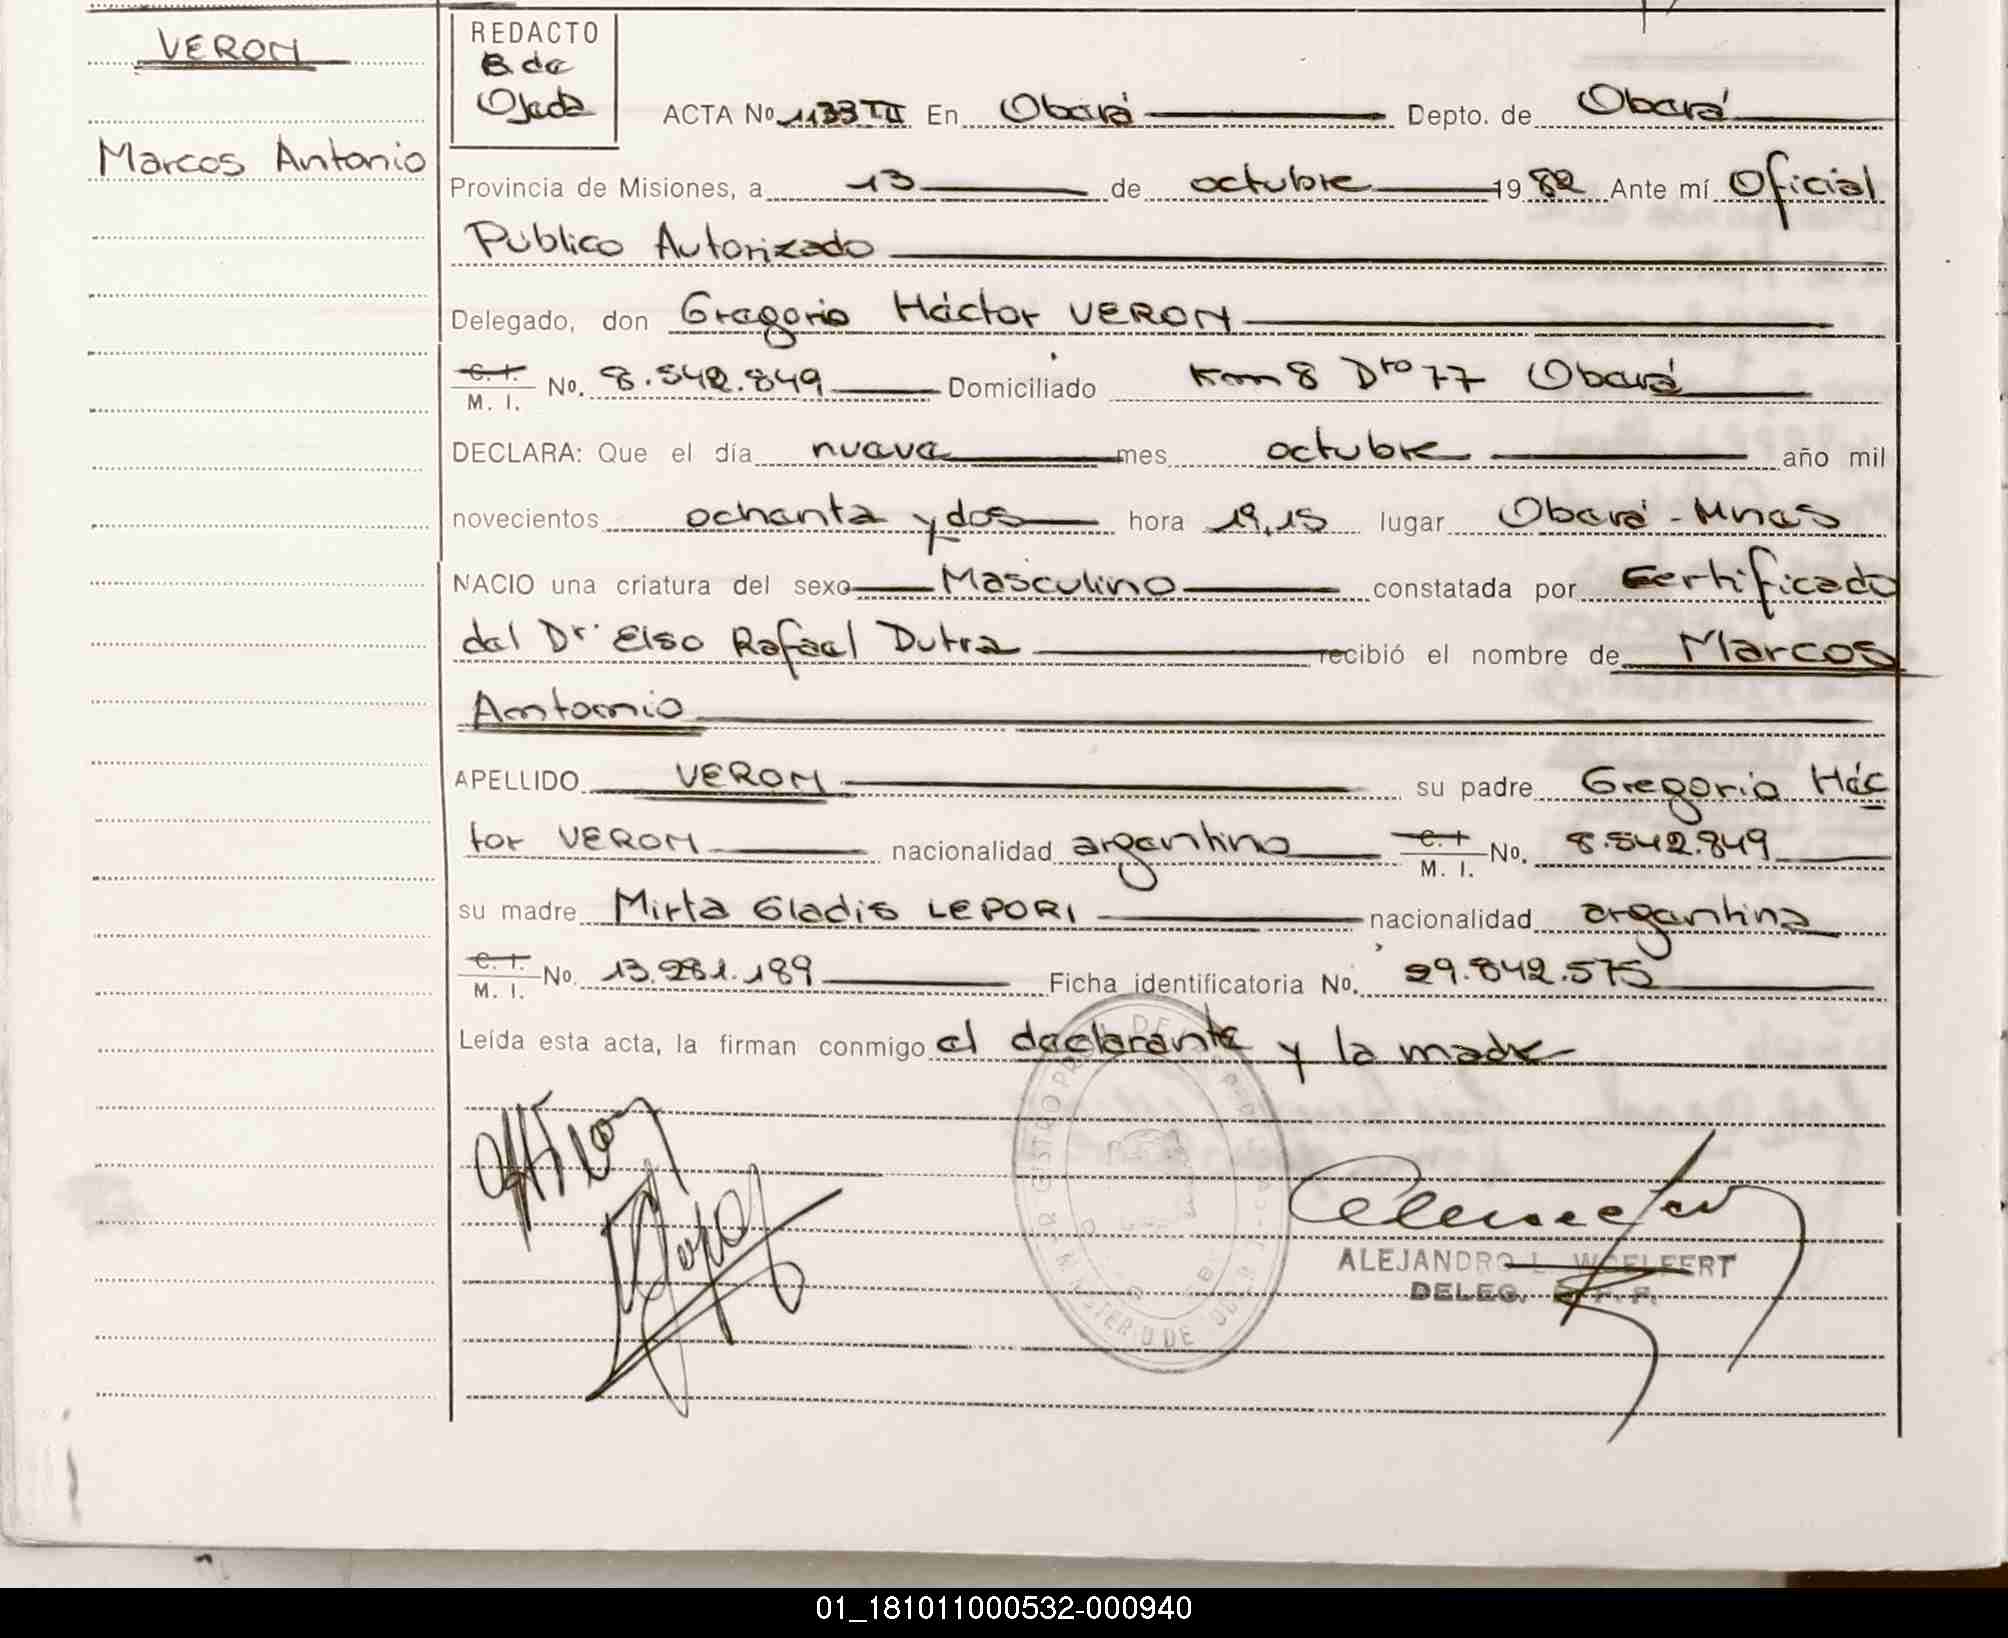 VERON
Marcos Antonio
REDACTO
B. de
Ojeda
ACTA No 1133 TII En Oberá Depto. de Oberá
Provincia de Misiones, a 13 de octubre 1982 Ante mí Oficial
Público Autorizado
Delegado, don Gregorio Héctor VERON
C. I. M. I. No. 8.542.849 Domiciliado Km 8 Dto 77 Oberá
DECLARA: Que el día nueve mes octubre año mil
novecientos ochenta y dos hora 19,15 lugar Oberá - Mnes
NACIO una criatura del sexo Masculino constatada por Certificado
del Dr. Elso Rafael Dutra recibió el nombre de Marcos
Antonio
APELLIDO VERON su padre Gregorio Héc
tor VERON nacionalidad argentino C. I. M. I. No. 8.542.849
su madre Mirta Gladis LEPORI nacionalidad argentina
C. I. M. I. No. 13.281.189 Ficha identificatoria No. 29.842.575
Leída esta acta, la firman conmigo el declarante y la madre
ALEJANDRO L. WOELFERT
DELEG. R. P. P.
01_181011000532-000940